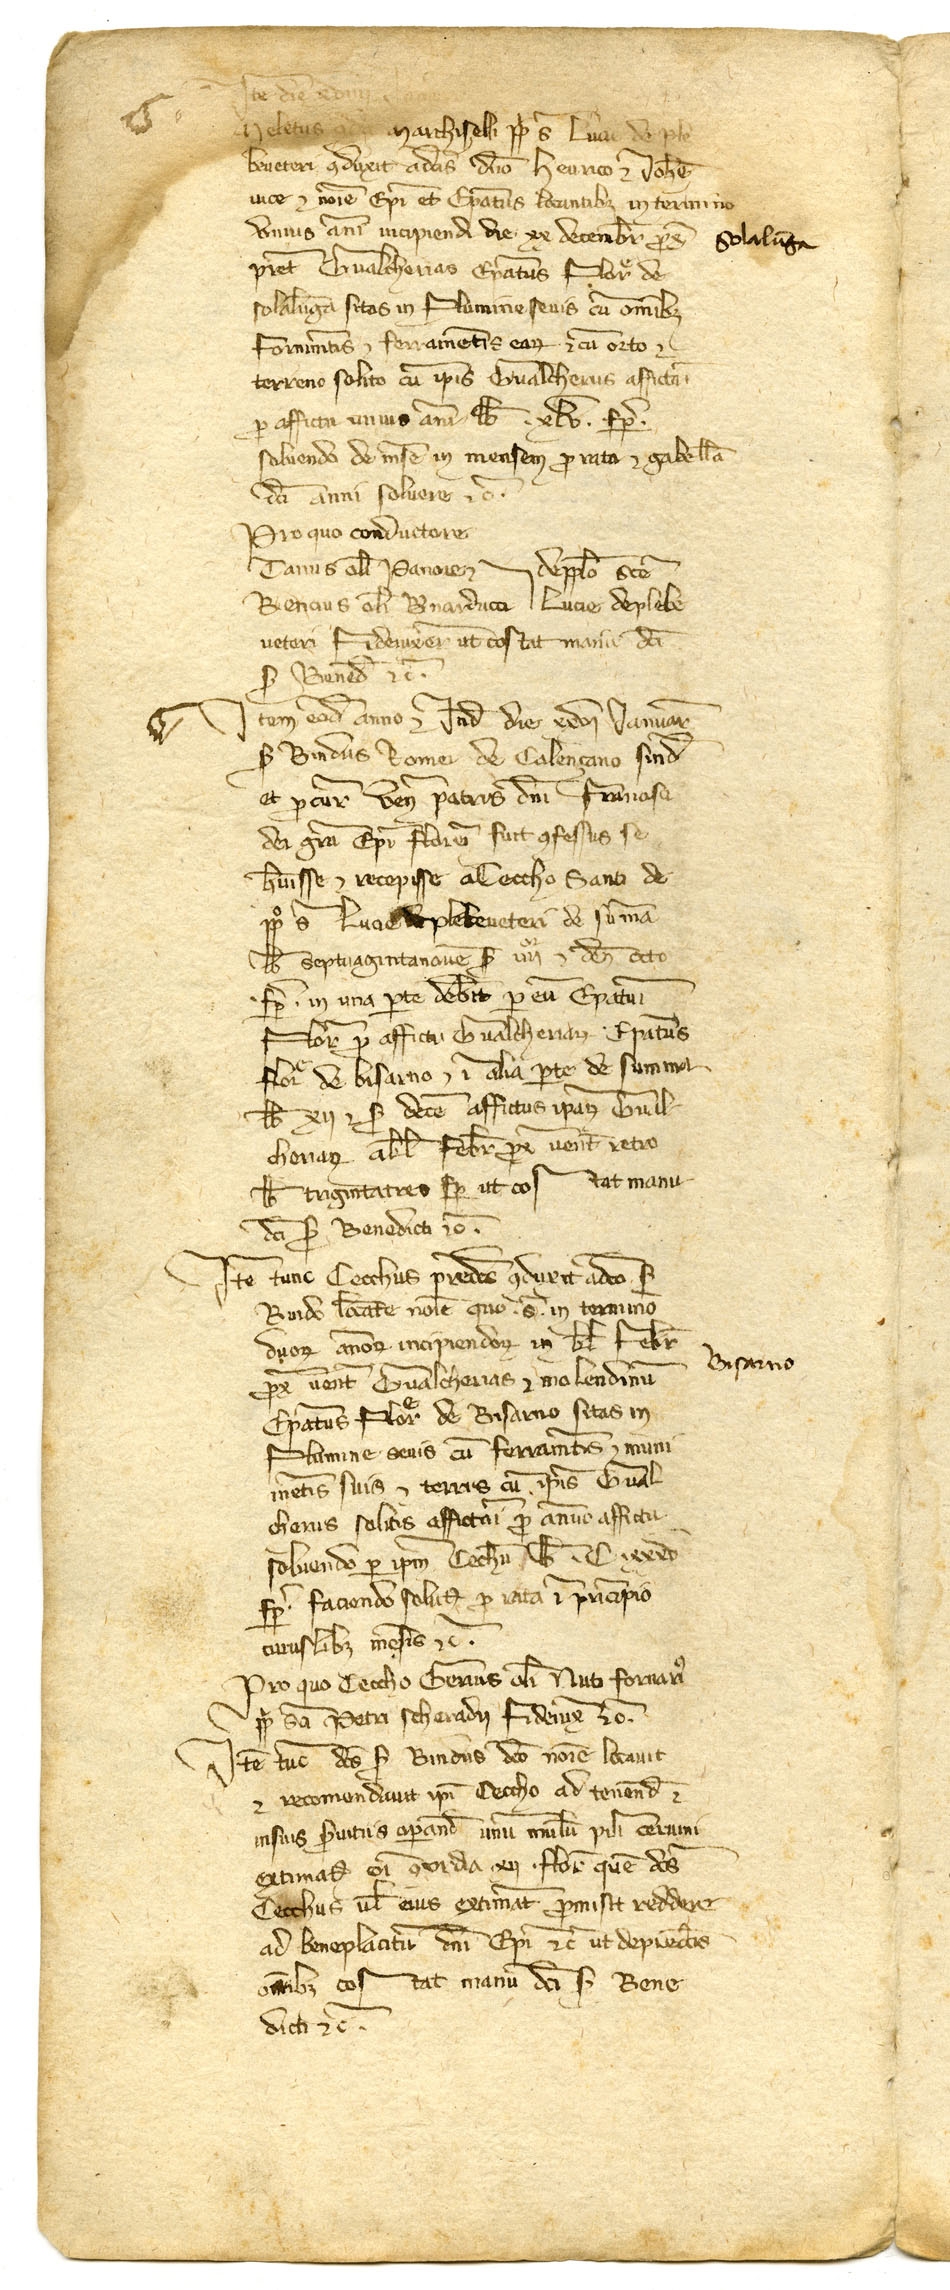 Ite die xviij
Meletus Marchiselli pp s Lucie de ple
beveteri 9duxit a dcis dno Henrico ⁊ Iohe
vice ⁊ noie Epi et Epatus locantibz in termino
Unius ani incipiendi die xx decembr px
Solaluga
pret Gualcherias Epatus Flore de
solaluga sitas in Flumine sevis cu omibz
fornimtis ⁊ ferrametis eaꝝ ⁊ cu orto ⁊
terreno solito cu ipis Gualcheriis afficta͞i
p affictu unius ani lb . xlv . fp .
solvendo de mse in mensem p rata ⁊ gabella
dci anni solvere ⁊c .
Pro quo conductore
Tanus oli de pplo sce
Bencius oli Bnarducci Lucie de plebe
veteri Fideiuxer ut costat manu dci
s Bened ⁊c .
Item eod anno ⁊ Ind die xxvj Ianuar
s Bindus Romei de Calenzano sind
et pcur ven patris dni Francisci
dei gra Epi floren fuit 9fessus se
huisse ⁊ recepisse a Ceccho Santi de
ppo s Lucie de plebeveteri de suma
lb septuagintanove s iiijor ⁊ den octo
. fp . in una pte debit p eu Epatui
Flor p affictu Gualcheriaꝝ Epatus
flore de bisarno ⁊ i alia pte de summa
lb xij ⁊ s dece affictus ipaꝝ Gual
cheriaꝝ a kl Febr px vent retro
lb trigintatres fp ut cos tat manu
dci s Benedicti ⁊c .
Ite tunc Cecchus predcs 9duxit a dco s
Bindo locate noie quo . s . in termino
duoꝝ anoꝝ incipiendoꝝ in kl Febr
Bisarno
px vent Gualcherias ⁊ molendinu
Epatus Flore de Bisarno sitas in
Flumine sevis cu ferramtis ⁊ muni
metis suis ⁊ terris cu ipis Gual
cheriis solitis affictai p annuo affictu
solvendo p ipm Cechu lb . C . xxv
fp . faciendo solut p rata i principio
cuiuslibz mesis ⁊c .
Pro quo Ceccho Gerius oli Nuti fornari9
pp sci Petri scheradij Fideiux ⁊c .
Ite tuc dcs s Bindus dco noie locavit
⁊ recomendavit ipi Ceccho ad tenend ⁊
in suis svitiis opand unu mulu pili cervini
extimat 9cordia xij . flor que dcs
Cecchus ul eius extimat pmisit reddere
ad beneplacitu dni Epi ⁊c ut de predcis
omibz cos tat manu dci s Bene
dicti ⁊c .